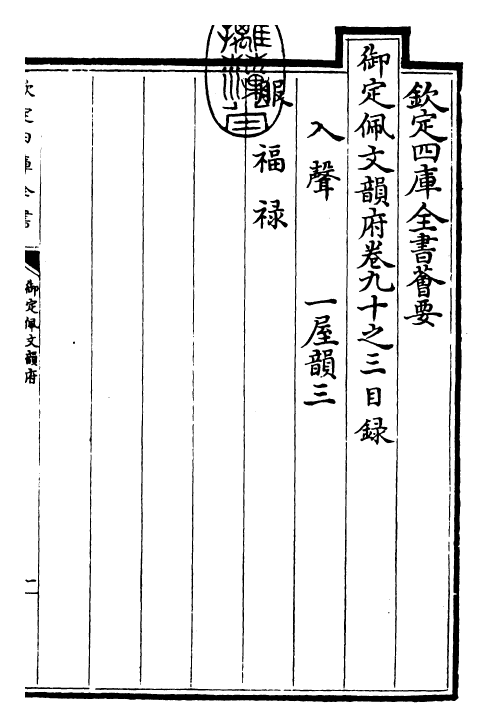 欽定四庫全書薈要
御定佩文韻府卷九十之三目録
入聲　一屋韻三
服　福　禄
欽定四庫全書
御定佩文韻府
一